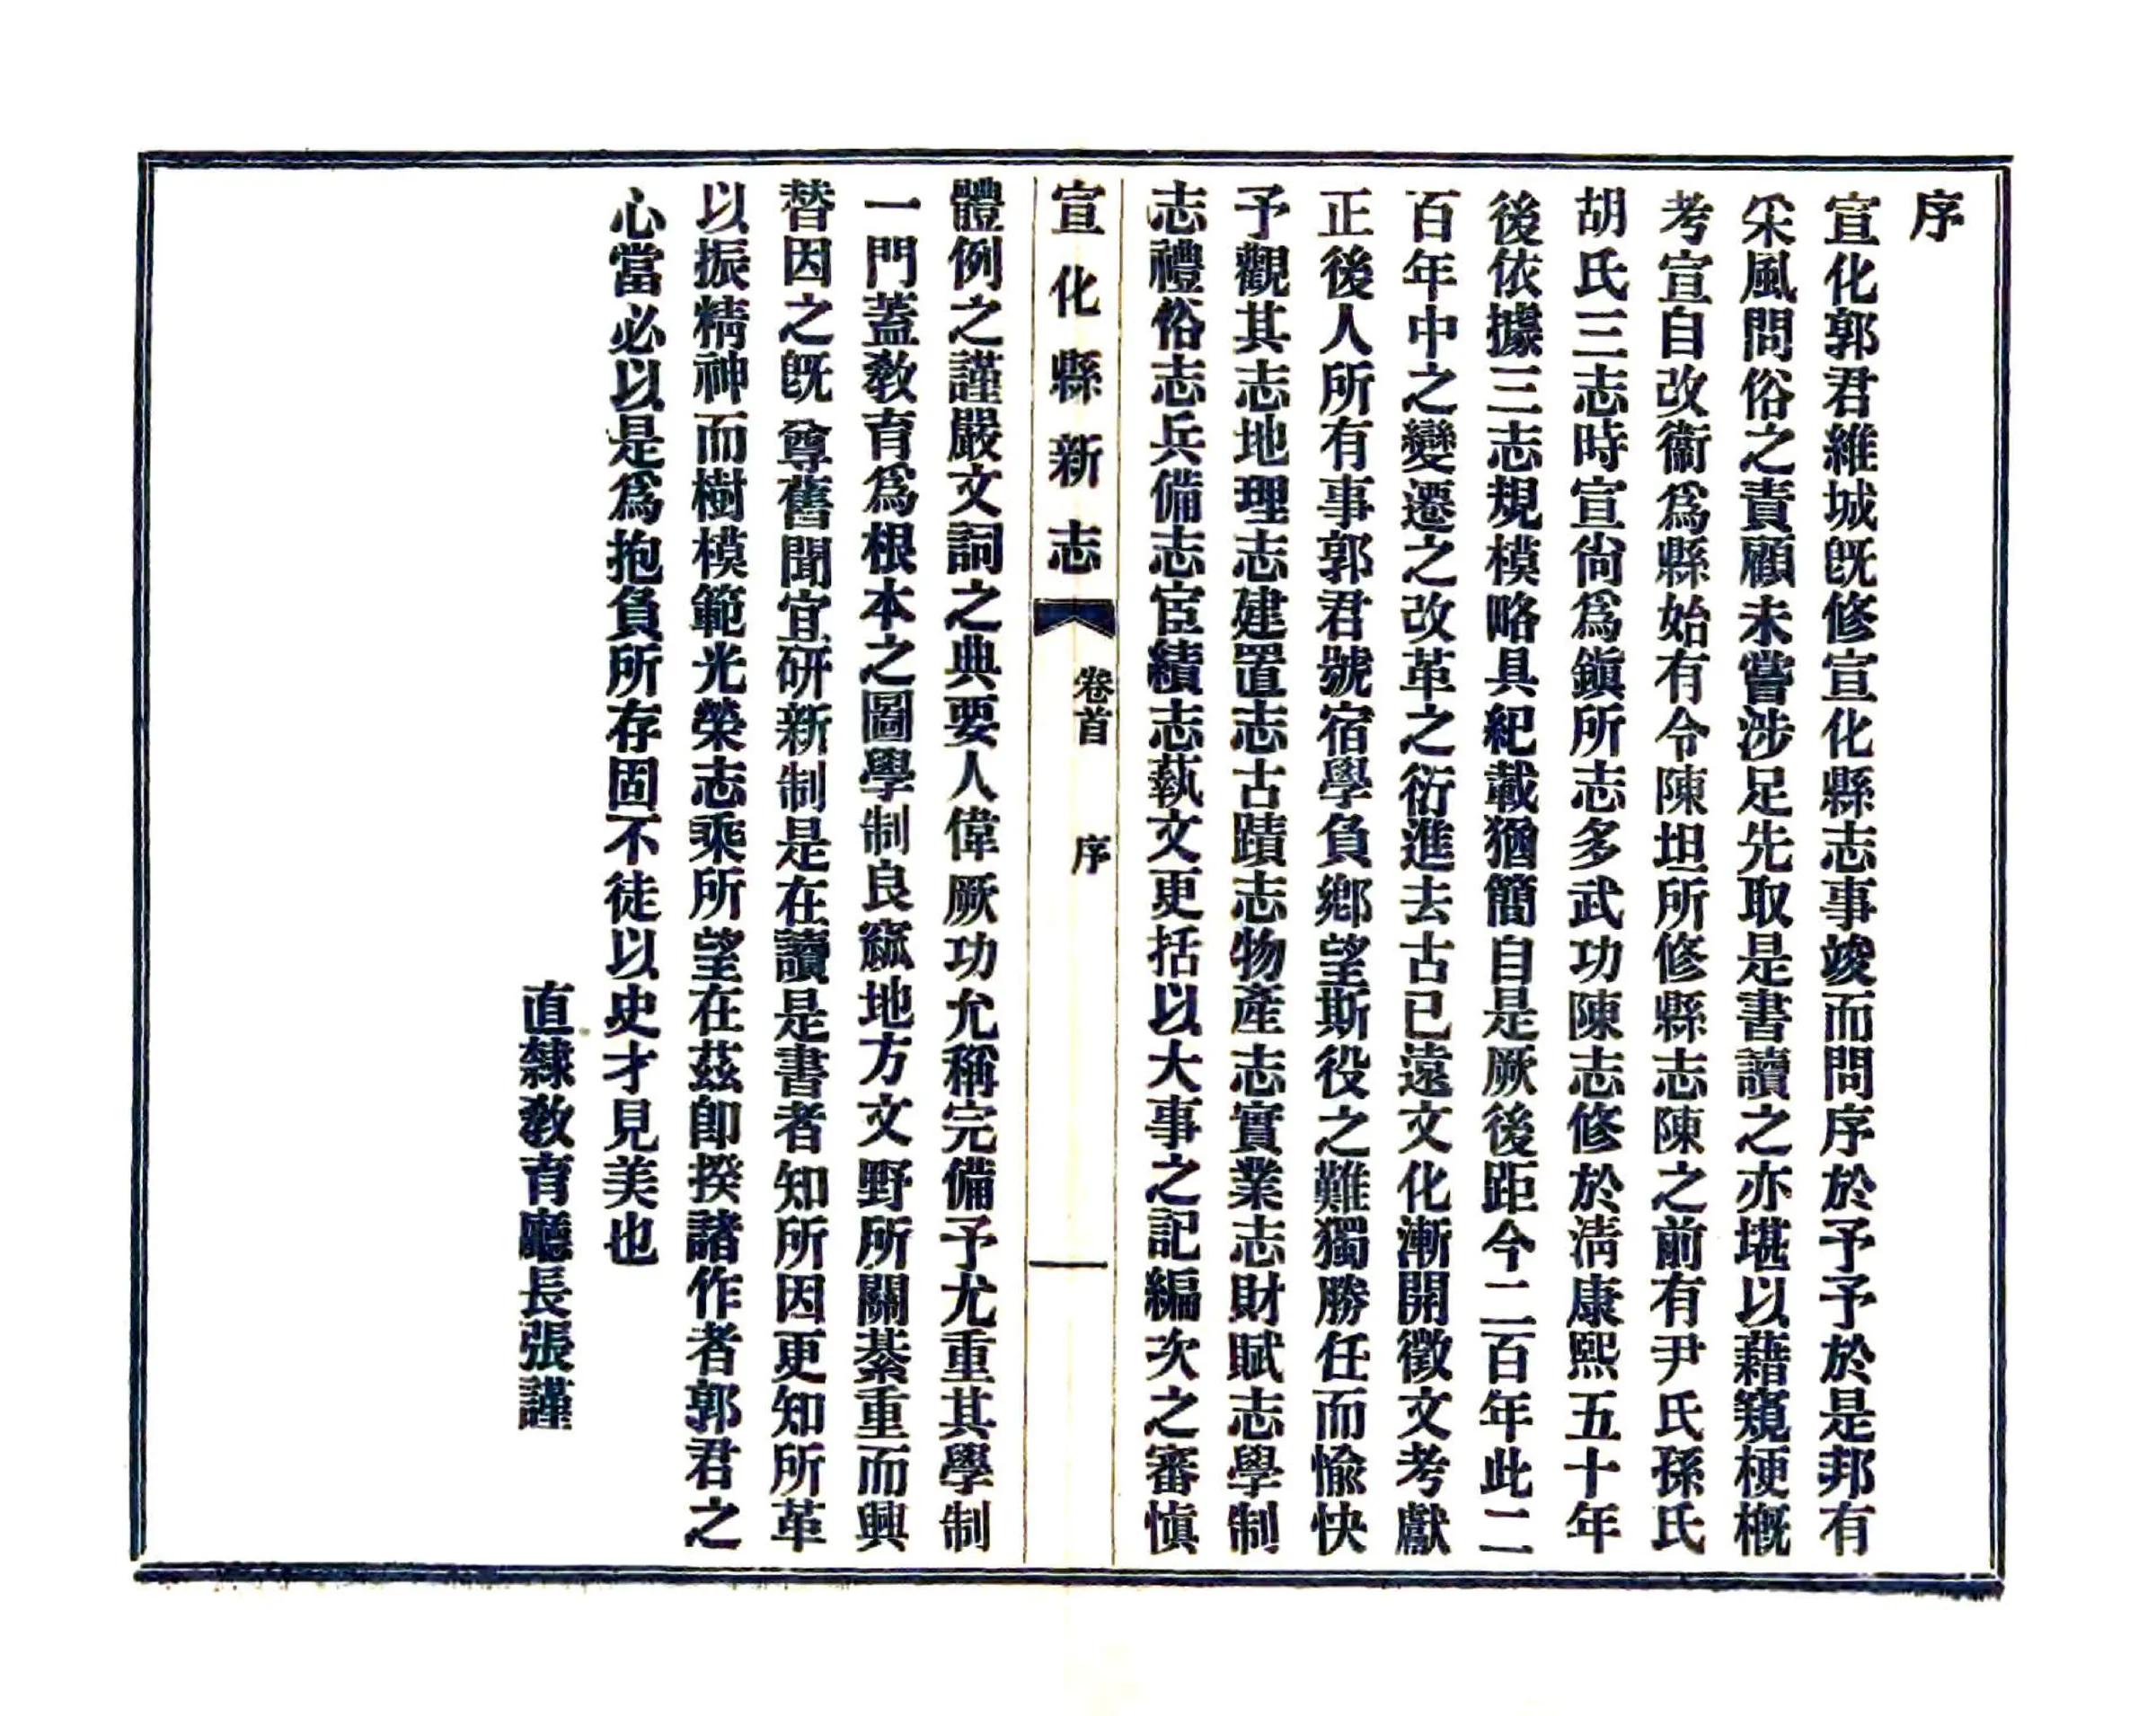 序
宣化郭君維城旣修宣化縣志事竣而問序於予予於是邦有
采風問俗之責顧未嘗涉足先取是書讀之亦堪以藉窺梗槪
考宣自改衞爲縣始有令陳坦所修縣志陳之前有尹氏孫氏
胡氏三志時宣尙爲鎭所志多武功陳志修於淸康熙五十年
後依據三志規模略具紀載猶簡自是厥後距今二百年此二
百年中之變遷之改革之衍進去古已遠文化漸開徵文考獻
正後人所有事郭君號宿學負鄕望斯役之難獨勝任而愉快
予觀其志地理志建置志古蹟志物產志實業志財賦志學制
志禮俗志兵備志宦績志藝文更括以大事之記編次之審愼
宣化縣新志
卷首 序
一
體例之謹嚴文詞之典要人偉厥功允稱完備予尤重其學制
一門蓋敎育爲根本之圖學制良窳地方文野所關綦重而興
替因之旣尊舊聞宜研新制是在讀是書者知所因更知所革
以振精神而樹模範光榮志乘所望在茲卽揆諸作者郭君之
心當必以是爲抱負所存固不徒以史才見美也
直隸敎育廳長張謹